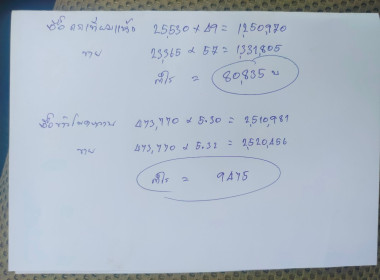 ซื้อ กระเทียมแห้ง 25530 × 49 = 1,250,970
ขาย 23,365 × 57 = 1,331,805
กำไร = 80,835
ซื้อข้าวโพดหวาน 473,770 × 5.30 = 2,510,981
ขาย 473,770 × 5.32 = 2,520,456
กำไร = 9475